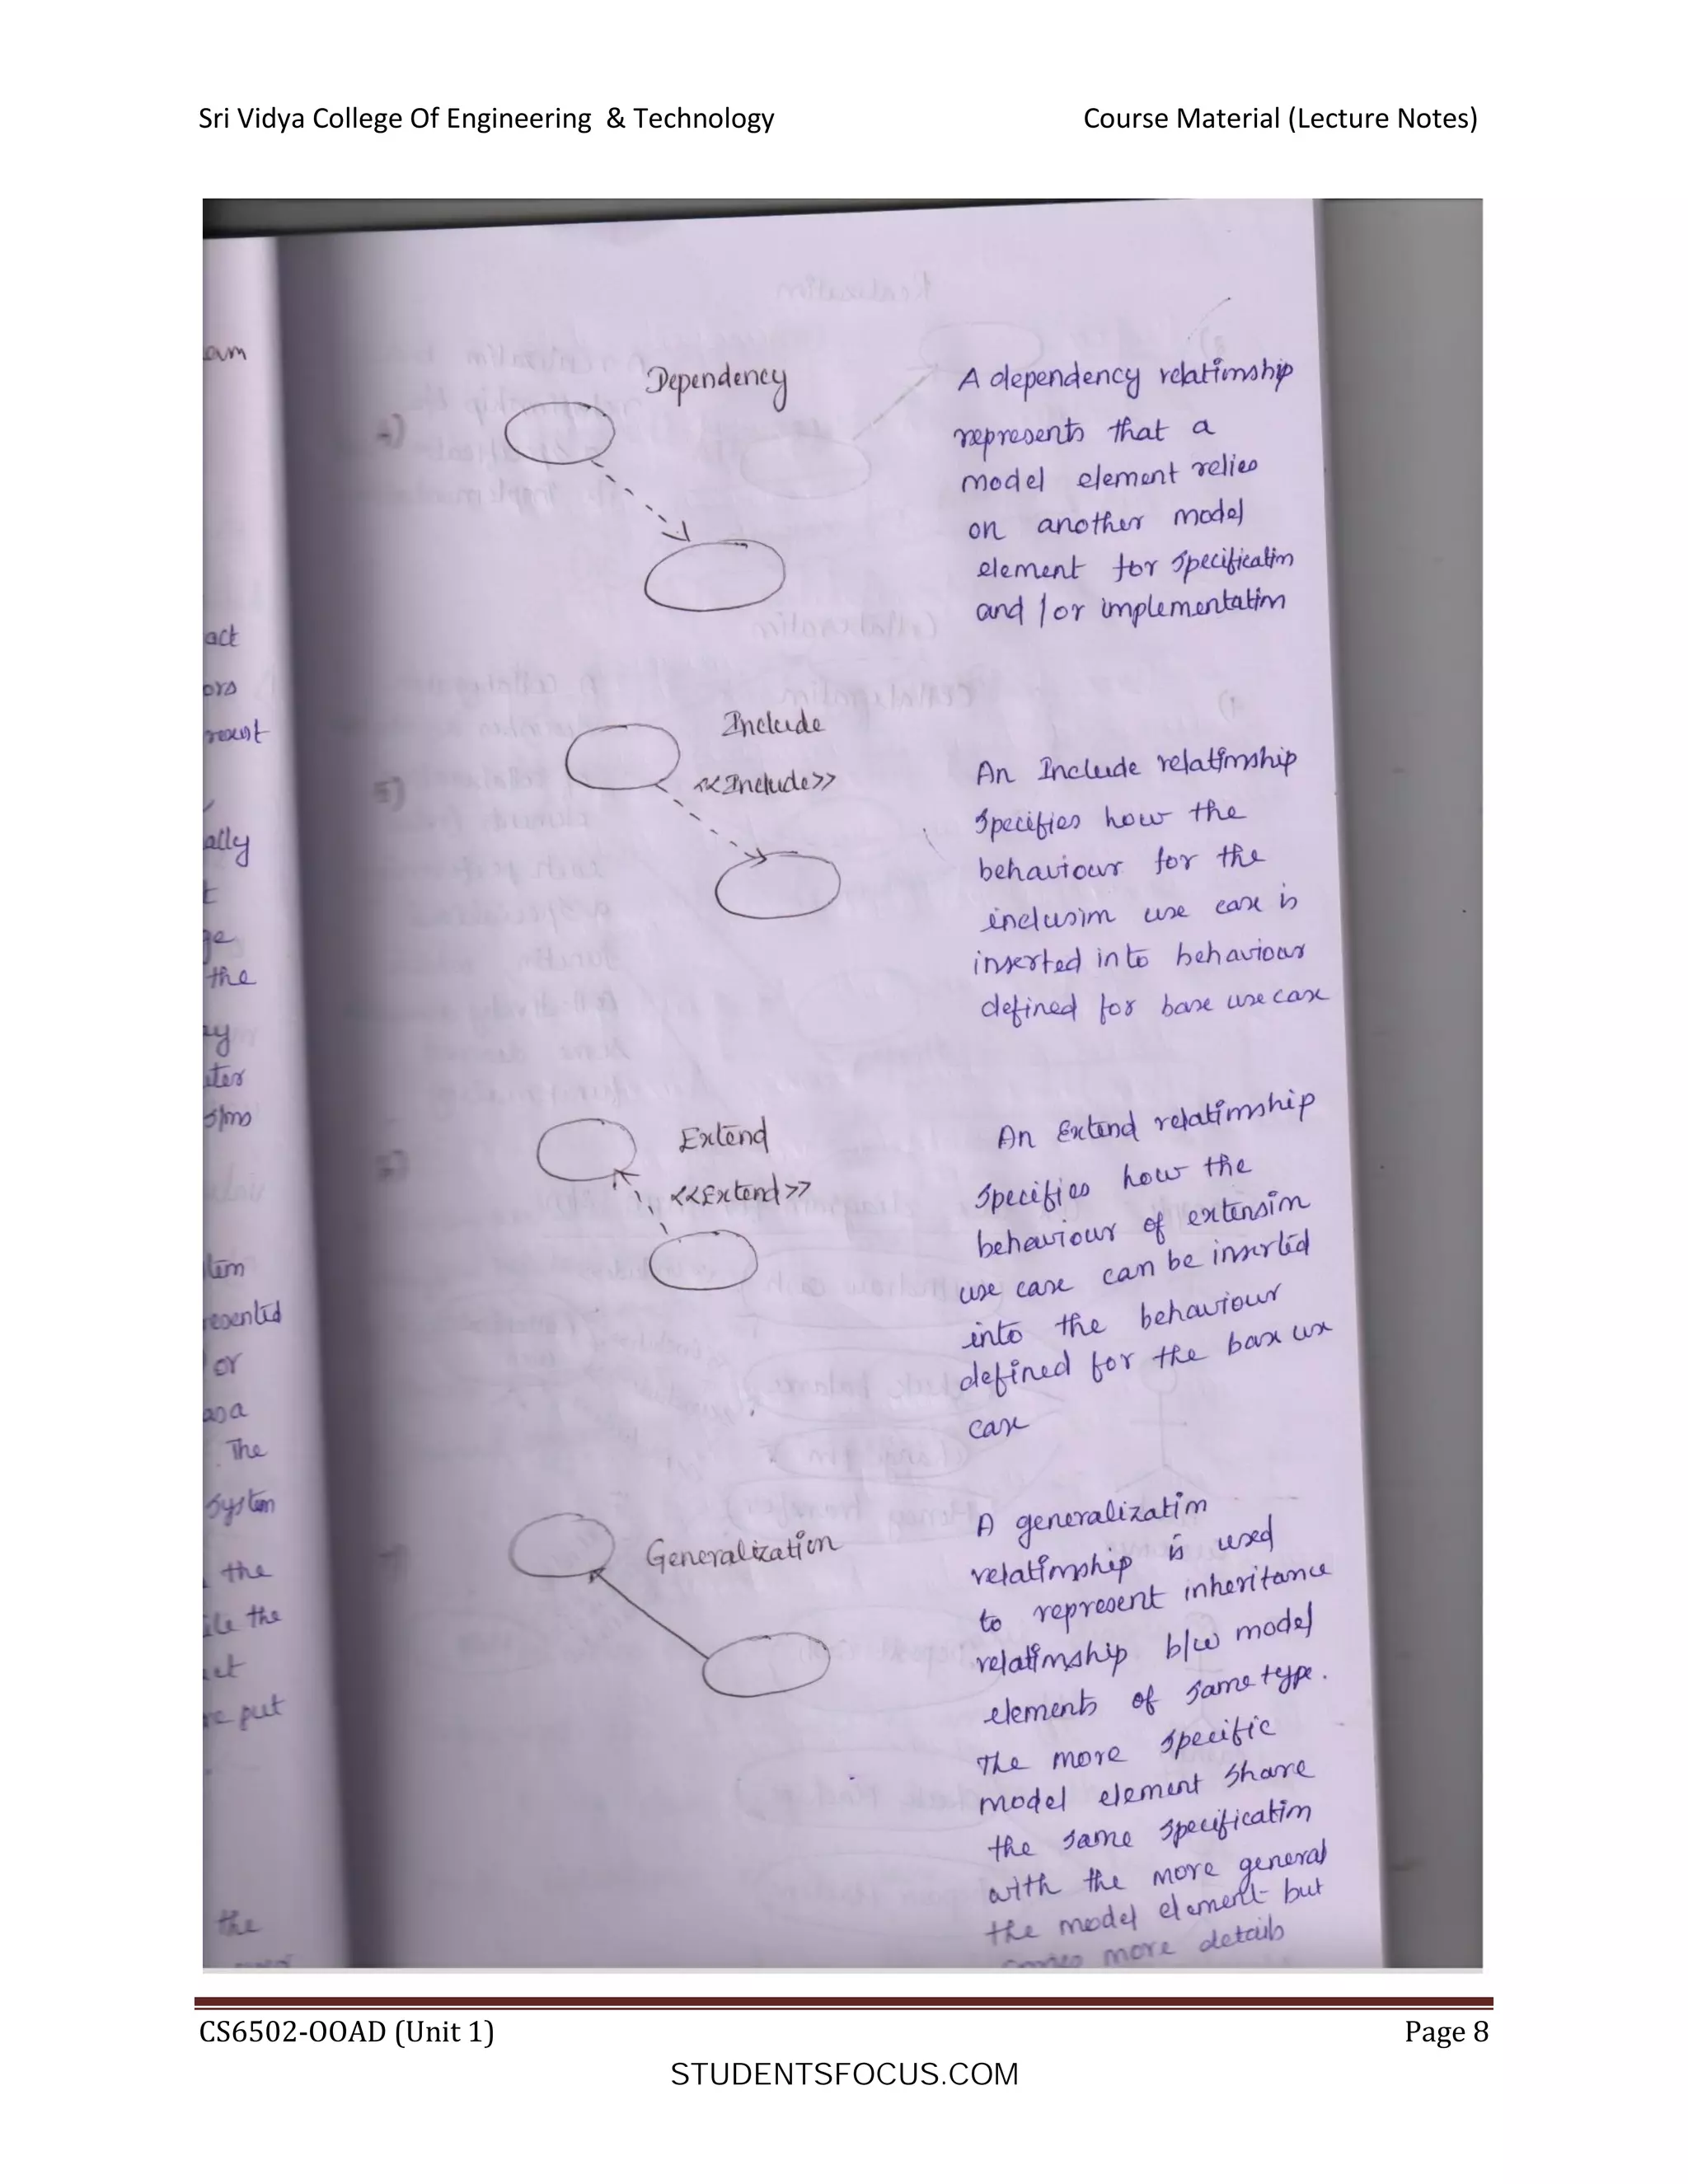 Sri Vidya College Of Engineering & Technology Course Material (Lecture Notes)
am
act
ors
ally
t
ge
the
or
as a
The
system
the
the
put
the
4)
Dependency
A dependency relationship
represents that a
model element relies
on another model
element for specification
and / or implementation
5)
Include
<<Include>>
An Include relationship
specifies how the
behaviour for the
inclusion use case is
inserted into behaviour
defined for base use case
6)
Extend
<<Extend>>
An Extend relationship
specifies how the
behaviour of extension
use case can be inserted
into the behaviour
defined for the base use
case
Generalization
A generalization
relationship is used
to represent inheritance
relationship b/w model
elements of same type.
The more specific
model element share
the same specification
with the more general
the model element but
more details
CS6502-OOAD (Unit 1) Page 8
STUDENTSFOCUS.COM